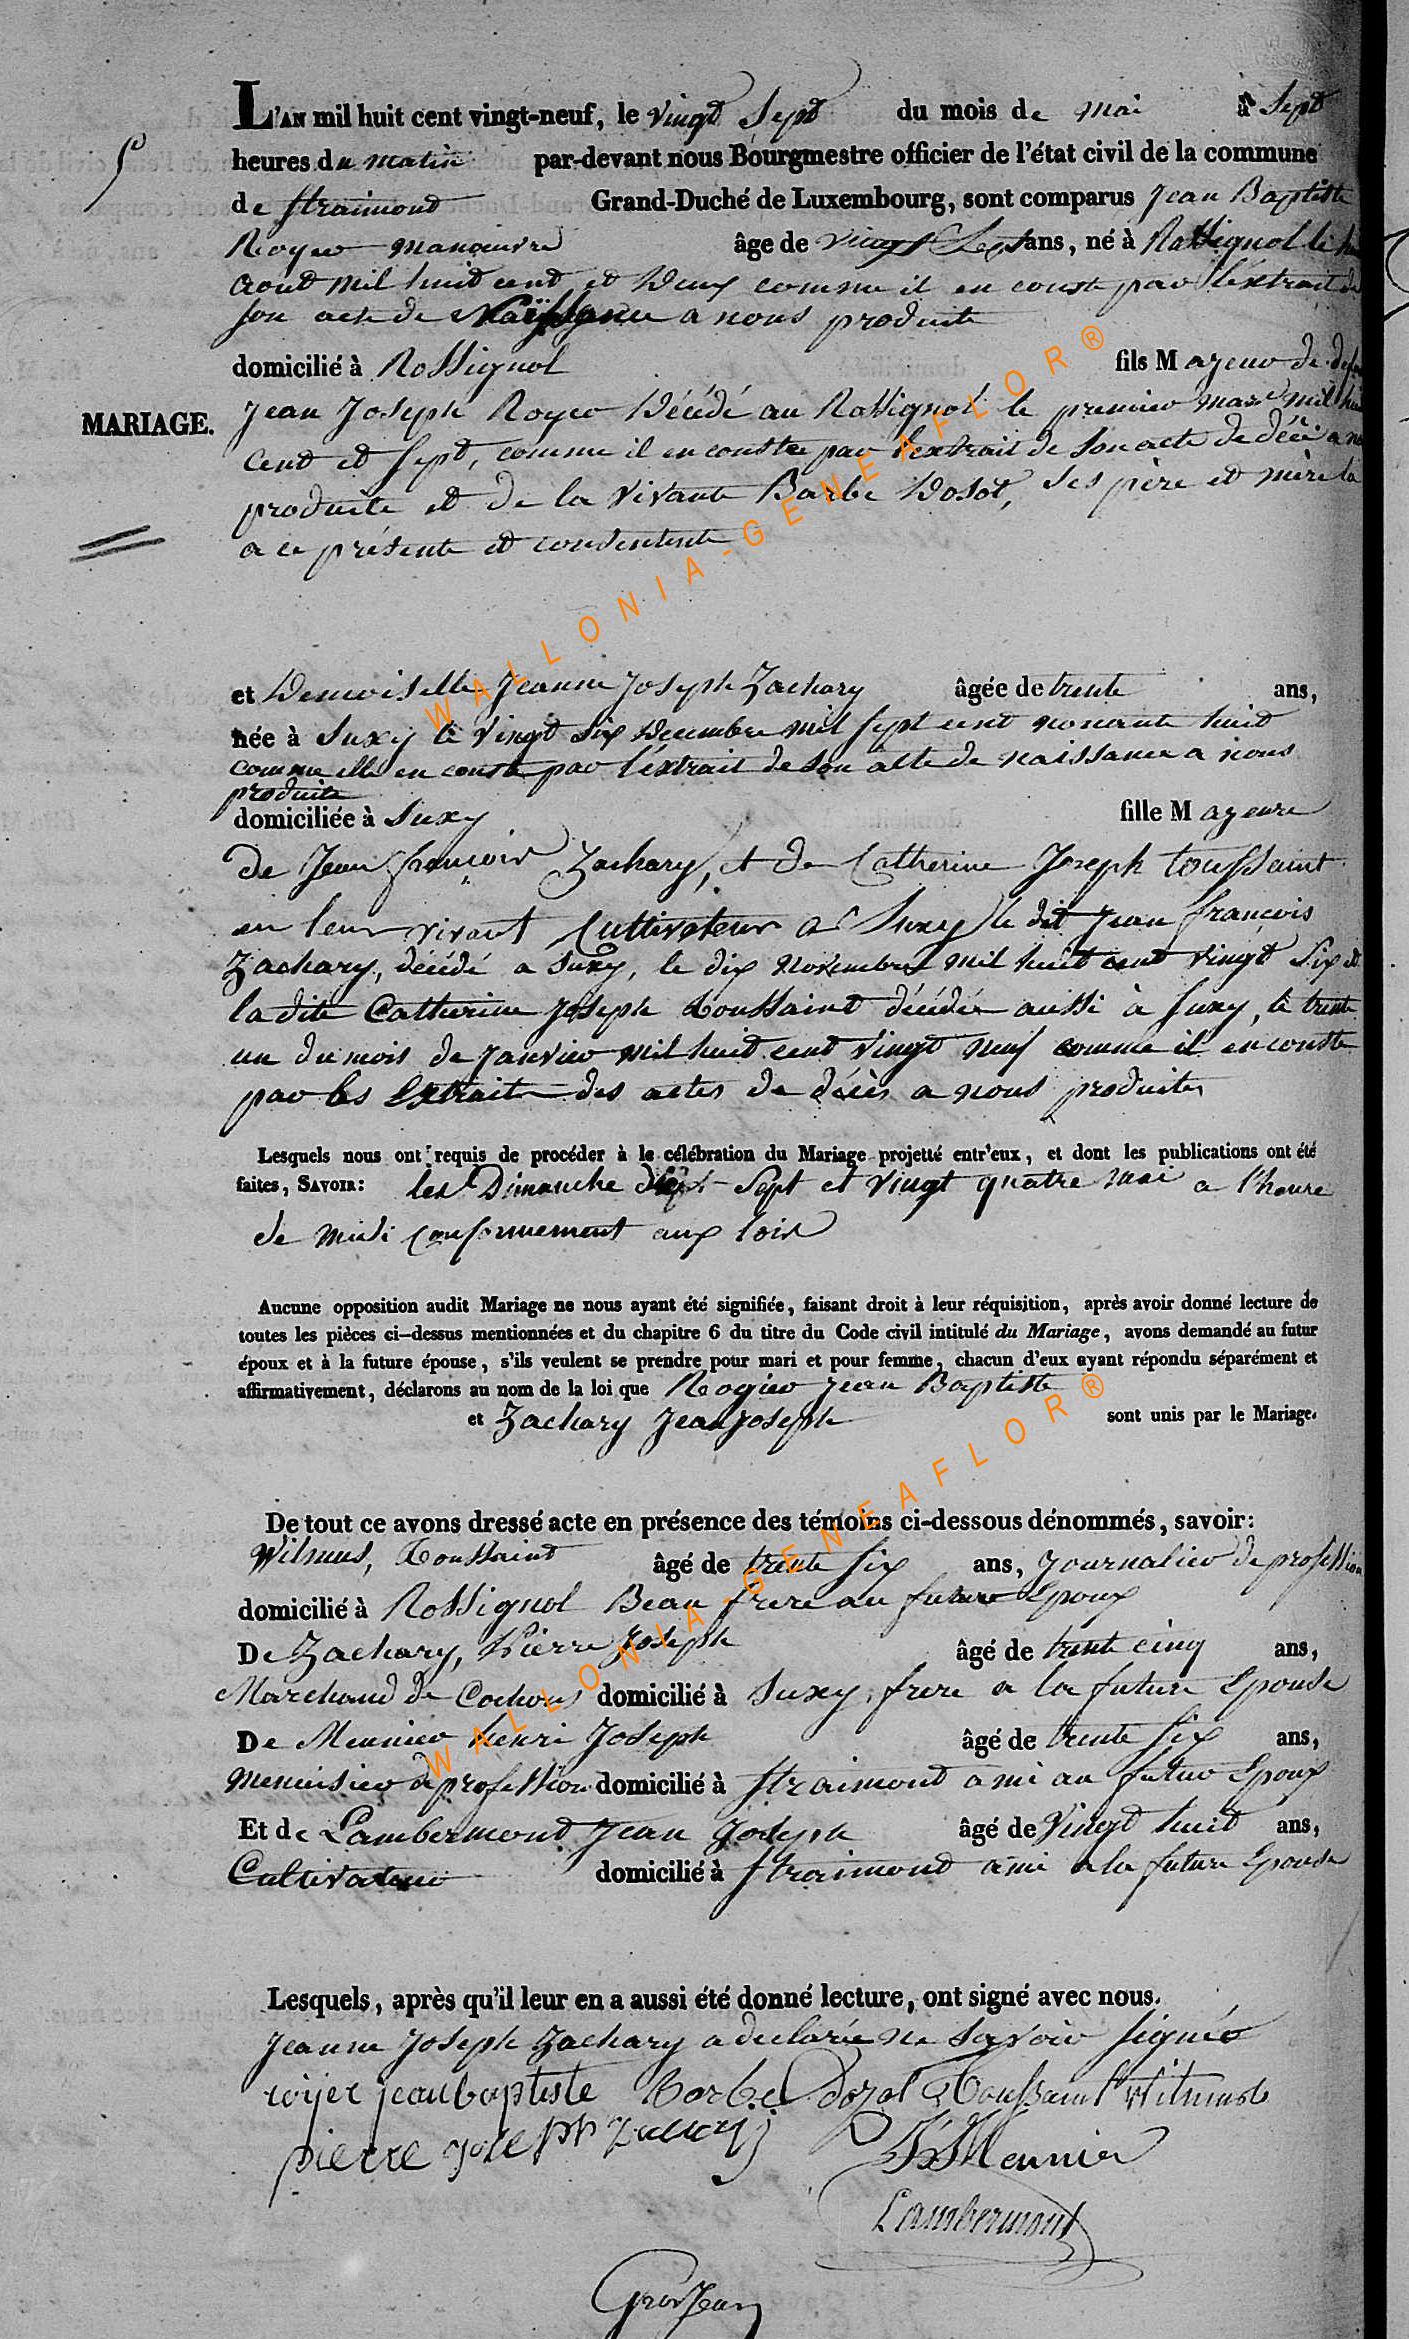 5
L'AN mil huit cent vingt-neuf, le vingt Sept du mois de mai à Sept
heures du matin par-devant nous Bourgmestre officier de l'état civil de la commune
de Straimond Grand-Duché de Luxembourg, sont comparus Jean Baptiste
Royer manœuvre âge de vingt Sept ans, né à Rossignol le
aout mil huit cent et deux comme il en conste par l'extrait de
son acte de a nous produite
domicilié à Rossignol fils Majeur de
MARIAGE.
Jean Joseph Royer Décédé au Rossignol le premier mars mil
cent et sept, comme il en conste par l'extrait de son acte de décè a
produite et de la vivante Barbe Dosot, ses père et mère la
a ce présente et consentente
et Demoiselle Jeanne Joseph Zachary âgée de trente ans,
née à Suxy le vingt six Decembre mil sept cent nonante huit
comme elle en conste par l'extrait de son acte de naissance a nous
produite
domiciliée à Suxy fille Majeure
de Jean françois Zachary, et de Catherine Joseph toussaint
en leur vivant Cultivateur a Suxy le dit Jean françois
Zachary, décédé a Suxy, le dix Novembre mil huit cent vingt six et
la dite Catherine Joseph Toussaint décédée aussi à Suxy, le trente
un du mois de Janvier mil huit cent vingt neuf comme il en conste
par les Extraits des actes de décès a nous produites
Lesquels nous ont requis de procéder à le célébration du Mariage projetté entr'eux, et dont les publications ont été
faites, SAVOIR: les Dimanche Sept et vingt quatre mai a l'heure
de midi conformement aux loix
Aucune opposition audit Mariage ne nous ayant été signifiée, faisant droit à leur réquisition, après avoir donné lecture de
toutes les pièces ci-dessus mentionnées et du chapitre 6 du titre du Code civil intitulé du Mariage, avons demandé au futur
époux et à la future épouse, s'ils veulent se prendre pour mari et pour femme, chacun d'eux ayant répondu séparément et
affirmativement, déclarons au nom de la loi que Rogier Jean Baptiste
et Zachary Jean Joseph sont unis par le Mariage.
De tout ce avons dressé acte en présence des témoins ci-dessous dénommés, savoir:
Wilmus, Toussaint âgé de trente six ans, Journalier de profession
domicilié à Rossignol Beau frere au futur Epoux
De Zachary, Pierre Joseph âgé de trente cinq ans,
Marchand de Cochons domicilié à Suxy, frere a la future Epouse
De Meunier henri Joseph âgé de trente six ans,
Menuisier de profession domicilié à Straimond ami au futur Epoux
Et de Lambermond Jean Joseph âgé de Vingt huit ans,
Cultivateur domicilié à Straimond ami a la future Epouse
Lesquels, après qu'il leur en a aussi été donné lecture, ont signé avec nous.
Jeanne Joseph Zachary a declarée ne Savoir signée
roijer jeanbaptiste Barbe Dozot Toussaint Wilmus
pierre joseph Zachary
Meunier
Lambermont
GrosJean
WALLONIA-GENEAFLOR®
WALLONIA-GENEAFLOR®